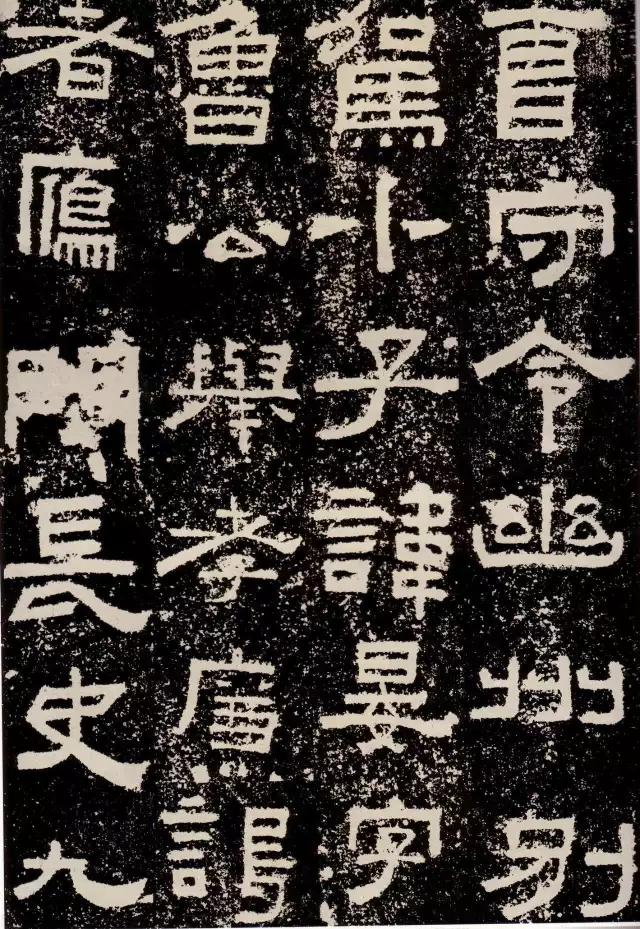 曹守令幽州別
駕小子諱晏字
魯公舉孝廉謁
者鴈門長史九